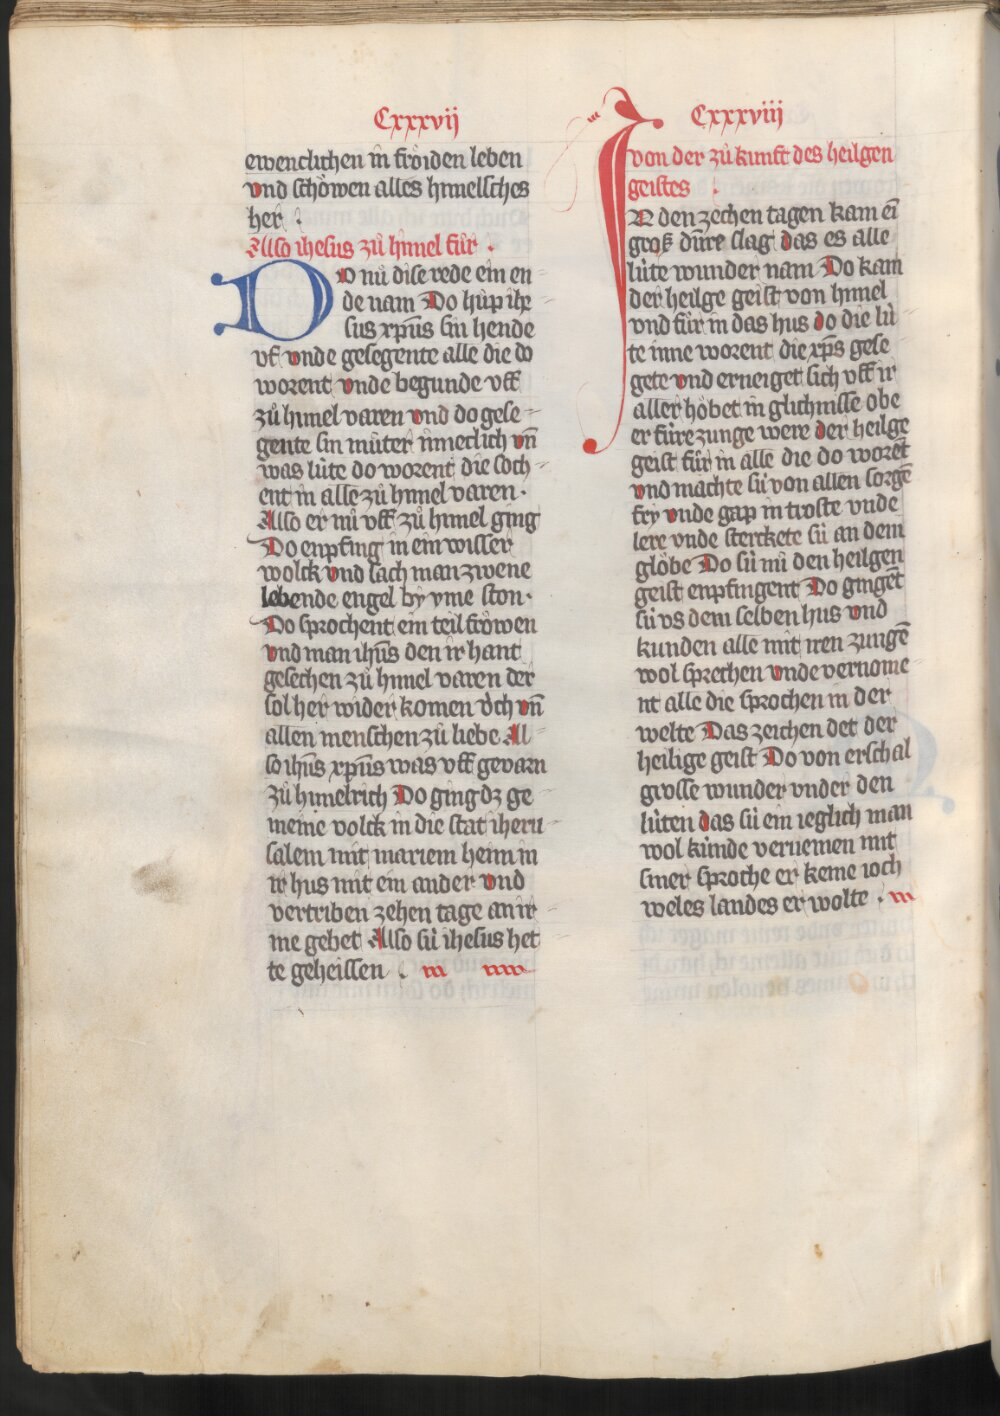 Cxxxvij
ewenclichen in froͤiden leben
vnd schoͤwen alles himelsches
her .
Also ihesus zuͦ himel fuͦr .
Do nuͦ dise rede ein en
de nam Do huͦp ihe
sus xp̄us sin hende
vf vnde gesegente alle die do
worent vnde begunde vff
zuͦ himel varen vnd do gese
gente sin muͦter inneclich vn̄
was lúte do worent die soch
ent in alse zuͦ himel varen .
Also er nuͦ vff zuͦ himel ging
Do enpfing in ein wisser
wolck vnd sach man zwene
lebende engel by yme ston .
Do sprochent ein teil froͤwen
vnd man ih̄us den ir hant
gesechen zuͦ himel varen der
sol her wider komen vͦch vn̄
allen menschen zuͦ liebe Al
so ih̄us xp̄us was vff gevarn
zuͦ himelrich Do ging dz ge
meine volck in die stat iheru
salem mit mariem heim in
ir hus mit ein ander vnd
vertriben zehen tage an ir
me gebet Also suͥ ihesus het
te geheissen .
Cxxxviii
von der zuͦ kunft des heilgen
geistes .
IN den zechen tagen kam ei̅
groß dúre slag das es alle
lúte wunder nam Do kam
der heilge geist von himel
vnd fuͦr in das hus do die lú
te inne worent die xp̄s gese
gete vnd erneiget sich vff ir
aller hoͤbet in glichnisse obe
er fúre zunge were der heilge
geist fuͦr in alle die do worēt
vnd machte suͥ von allen sorgē
fry vnde gap in troste vnde
lere vnde sterckete suͥ an dem
gloͤbe Do suͥ nuͦ den heilgen
geist enpfingent Do gingēt
suͥ vs dem selben hus vnd
kunden alle mit iren zungē
wol sprechen vnde vernome
nt alle die sprochen in der
welte Das zeichen det der
heilige geist Do von erschal
grosse wunder vnder den
lúten das suͥ ein ieglich man
wol kúnde vernemen mit
siner sproche er keme ioch
weles landes er wolte .